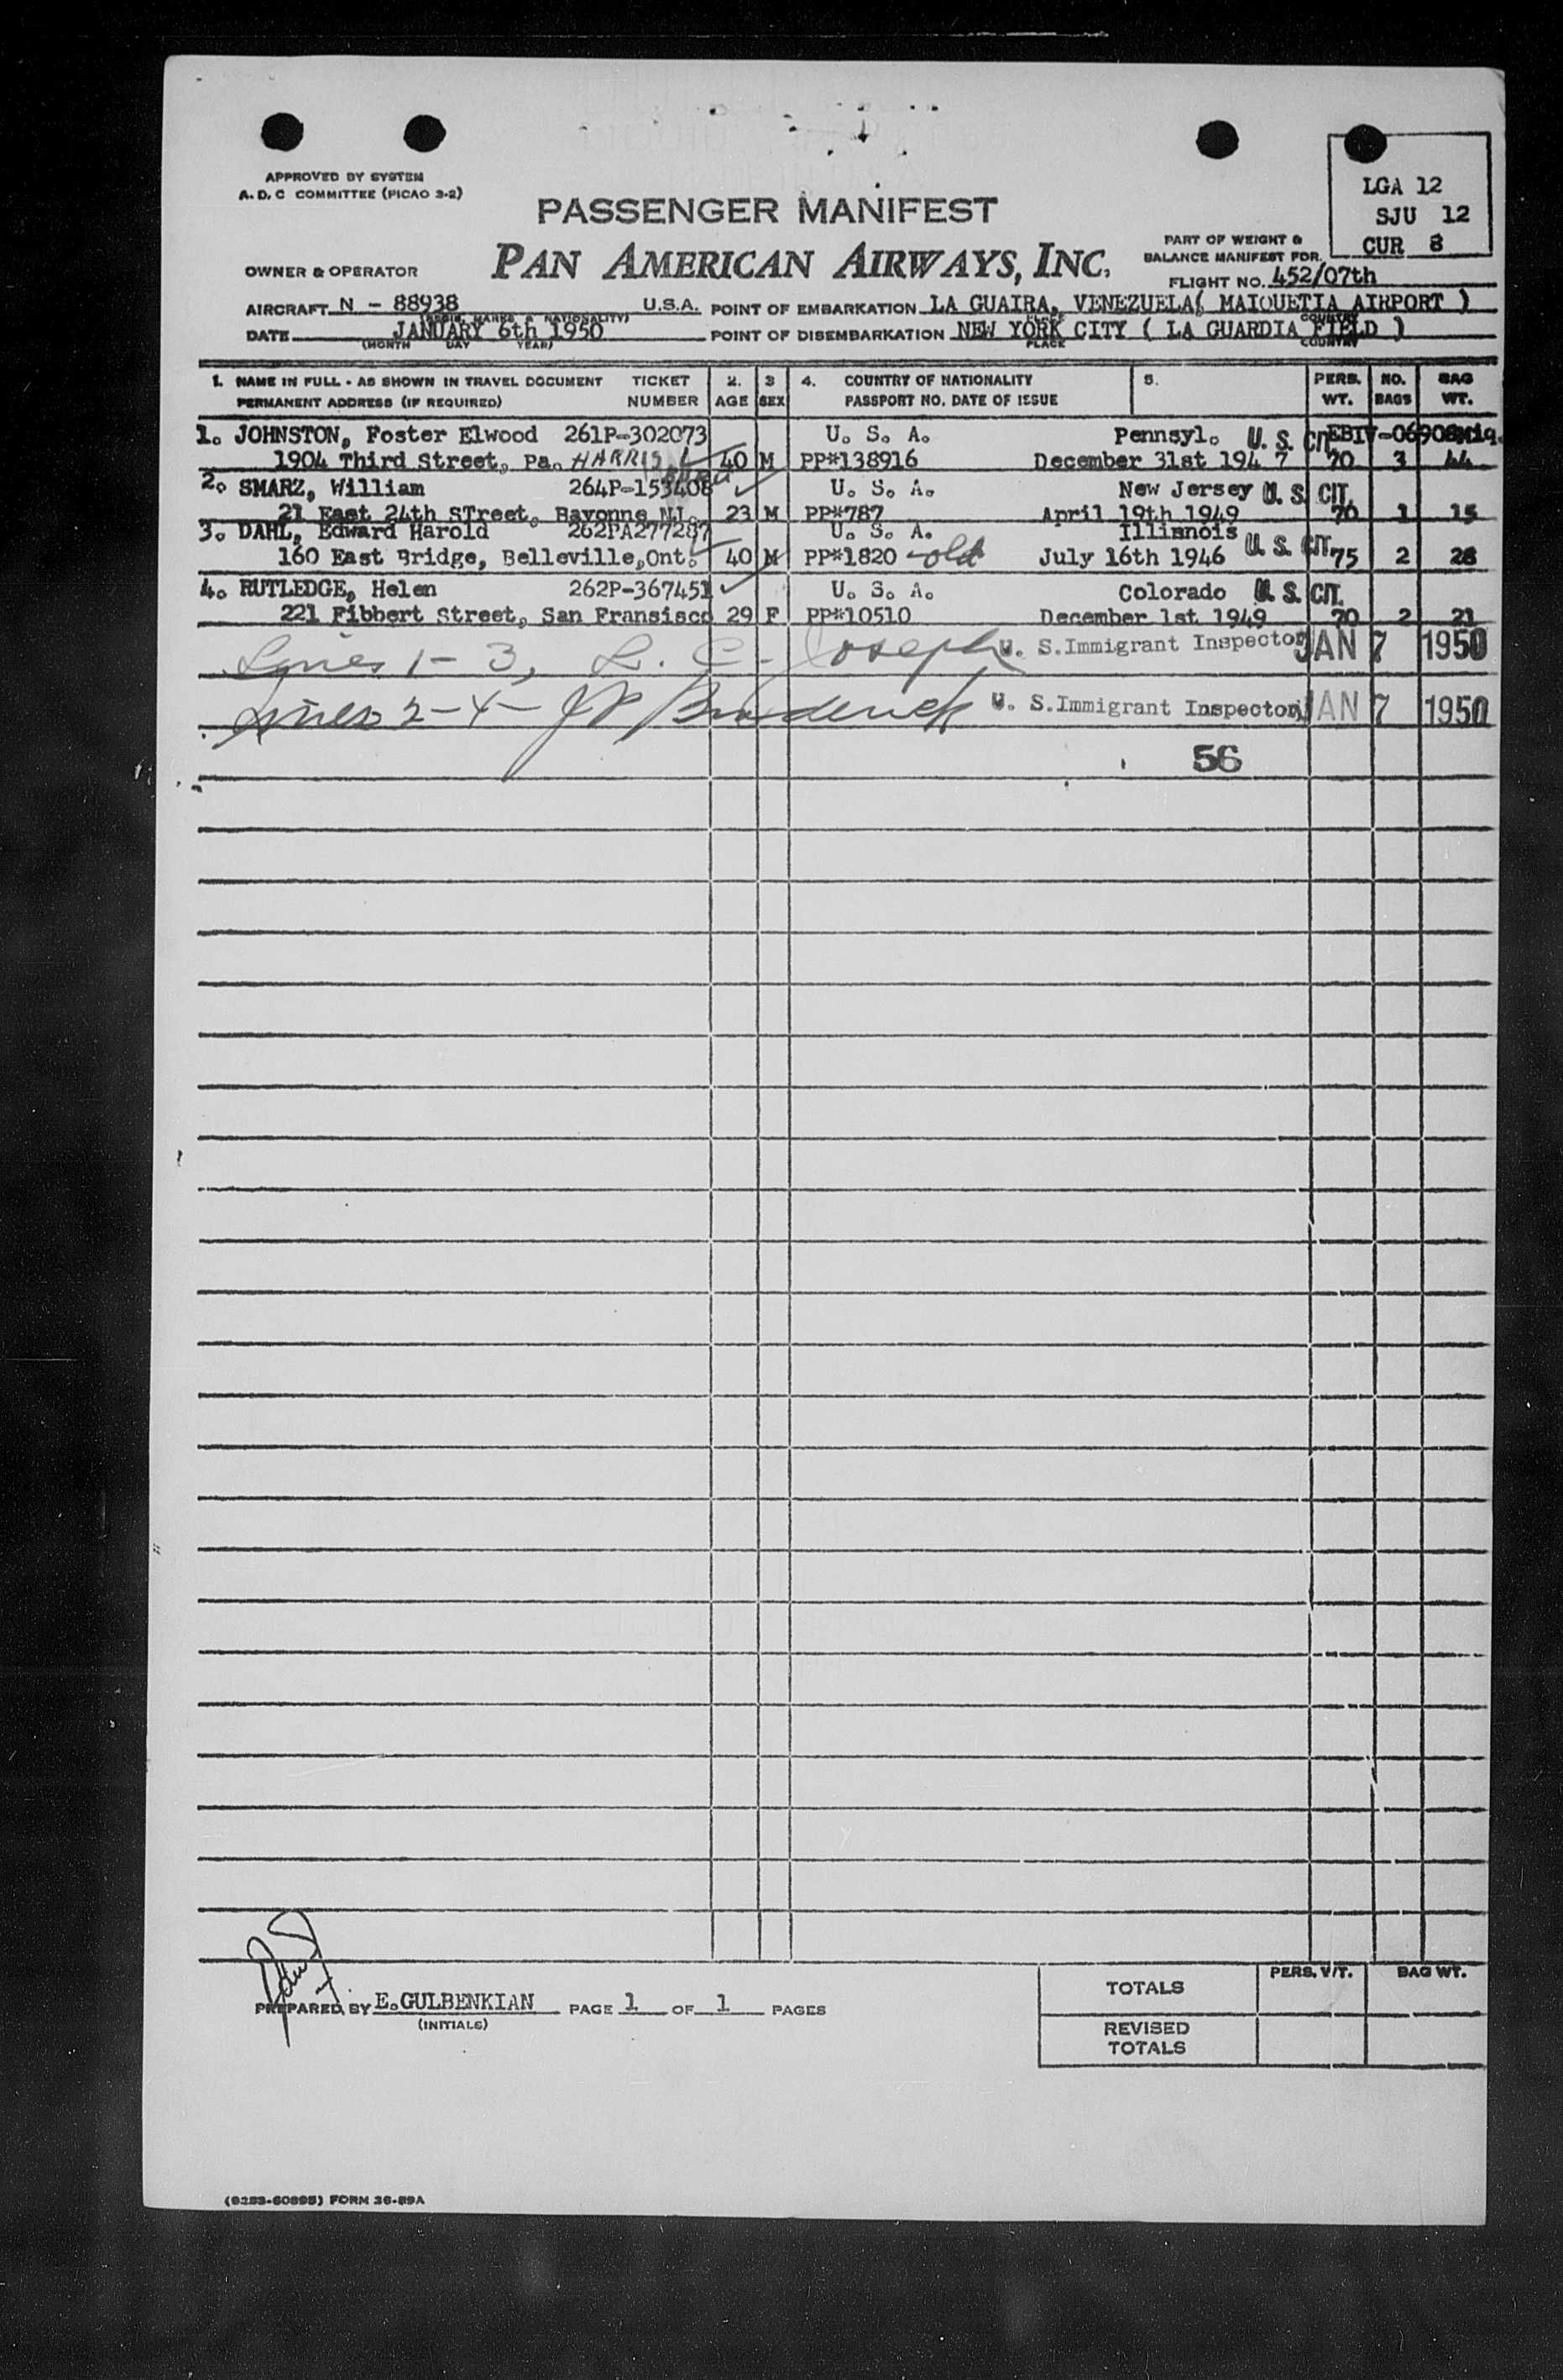 APPROVED BY SYSTEM
A. D. C COMMITTEE (PICAO 3-2)
LGA 12
SJU 12
CUR 8
PASSENGER MANIFEST
PAN AMERICAN AIRWAYS, INC.
PART OF WEIGHT &
BALANCE MANIFEST FOR
OWNER & OPERATOR
FLIGHT NO. 452/07th
AIRCRAFT N - 88938 U.S.A. POINT OF EMBARKATION LA GUAIRA, VENEZUELA( MAIQUETIA AIRPORT )
(REGIS. MARKS & NATIONALITY) PLACE COUNTRY
DATE JANUARY 6th 1950 POINT OF DISEMBARKATION NEW YORK CITY ( LA GUARDIA FIELD )
(MONTH DAY YEAR) PLACE COUNTRY
1. NAME IN FULL - AS SHOWN IN TRAVEL DOCUMENT TICKET 2. 3 4. COUNTRY OF NATIONALITY 5. PERS. NO. BAG
PERMANENT ADDRESS (IF REQUIRED) NUMBER AGE SEX PASSPORT NO. DATE OF ISSUE WT. BAGS WT.
1. JOHNSTON, Foster Elwood 261P-302073 U. S. A. Pennsyl. U. S. CIT.
1904 Third Street, Pa. HARRISBURG 40 M PP#138916 December 31st 194 7 70 3 44
2. SMARZ, William 264P-153408 U. S. A. New Jersey U. S. CIT.
21 East 24th STreet, Bayonne NJ. 23 M PP#787 April 19th 1949 70 1 15
3. DAHL, Edward Harold 262PA277287 U. S. A. Illisnois
160 East Bridge, Belleville,Ont. 40 M PP#1820 - old July 16th 1946 U. S. CIT. 75 2 28
4. RUTLEDGE, Helen 262P-367451 U. S. A. Colorado U. S. CIT.
221 Fibbert Street, San Fransisco 29 F PP#10510 December 1st 1949 70 2 21
Lines 1-3, L. C. Joseph U. S. Immigrant Inspector JAN 7 1950
Lines 2-4- JP Broderick U. S. Immigrant Inspector JAN 7 1950
56
PREPARED BY E.GULBENKIAN PAGE 1 OF 1 PAGES
(INITIALS)
TOTALS PERS. WT. BAG WT.
REVISED
TOTALS
(9283-60895) FORM 36-89A